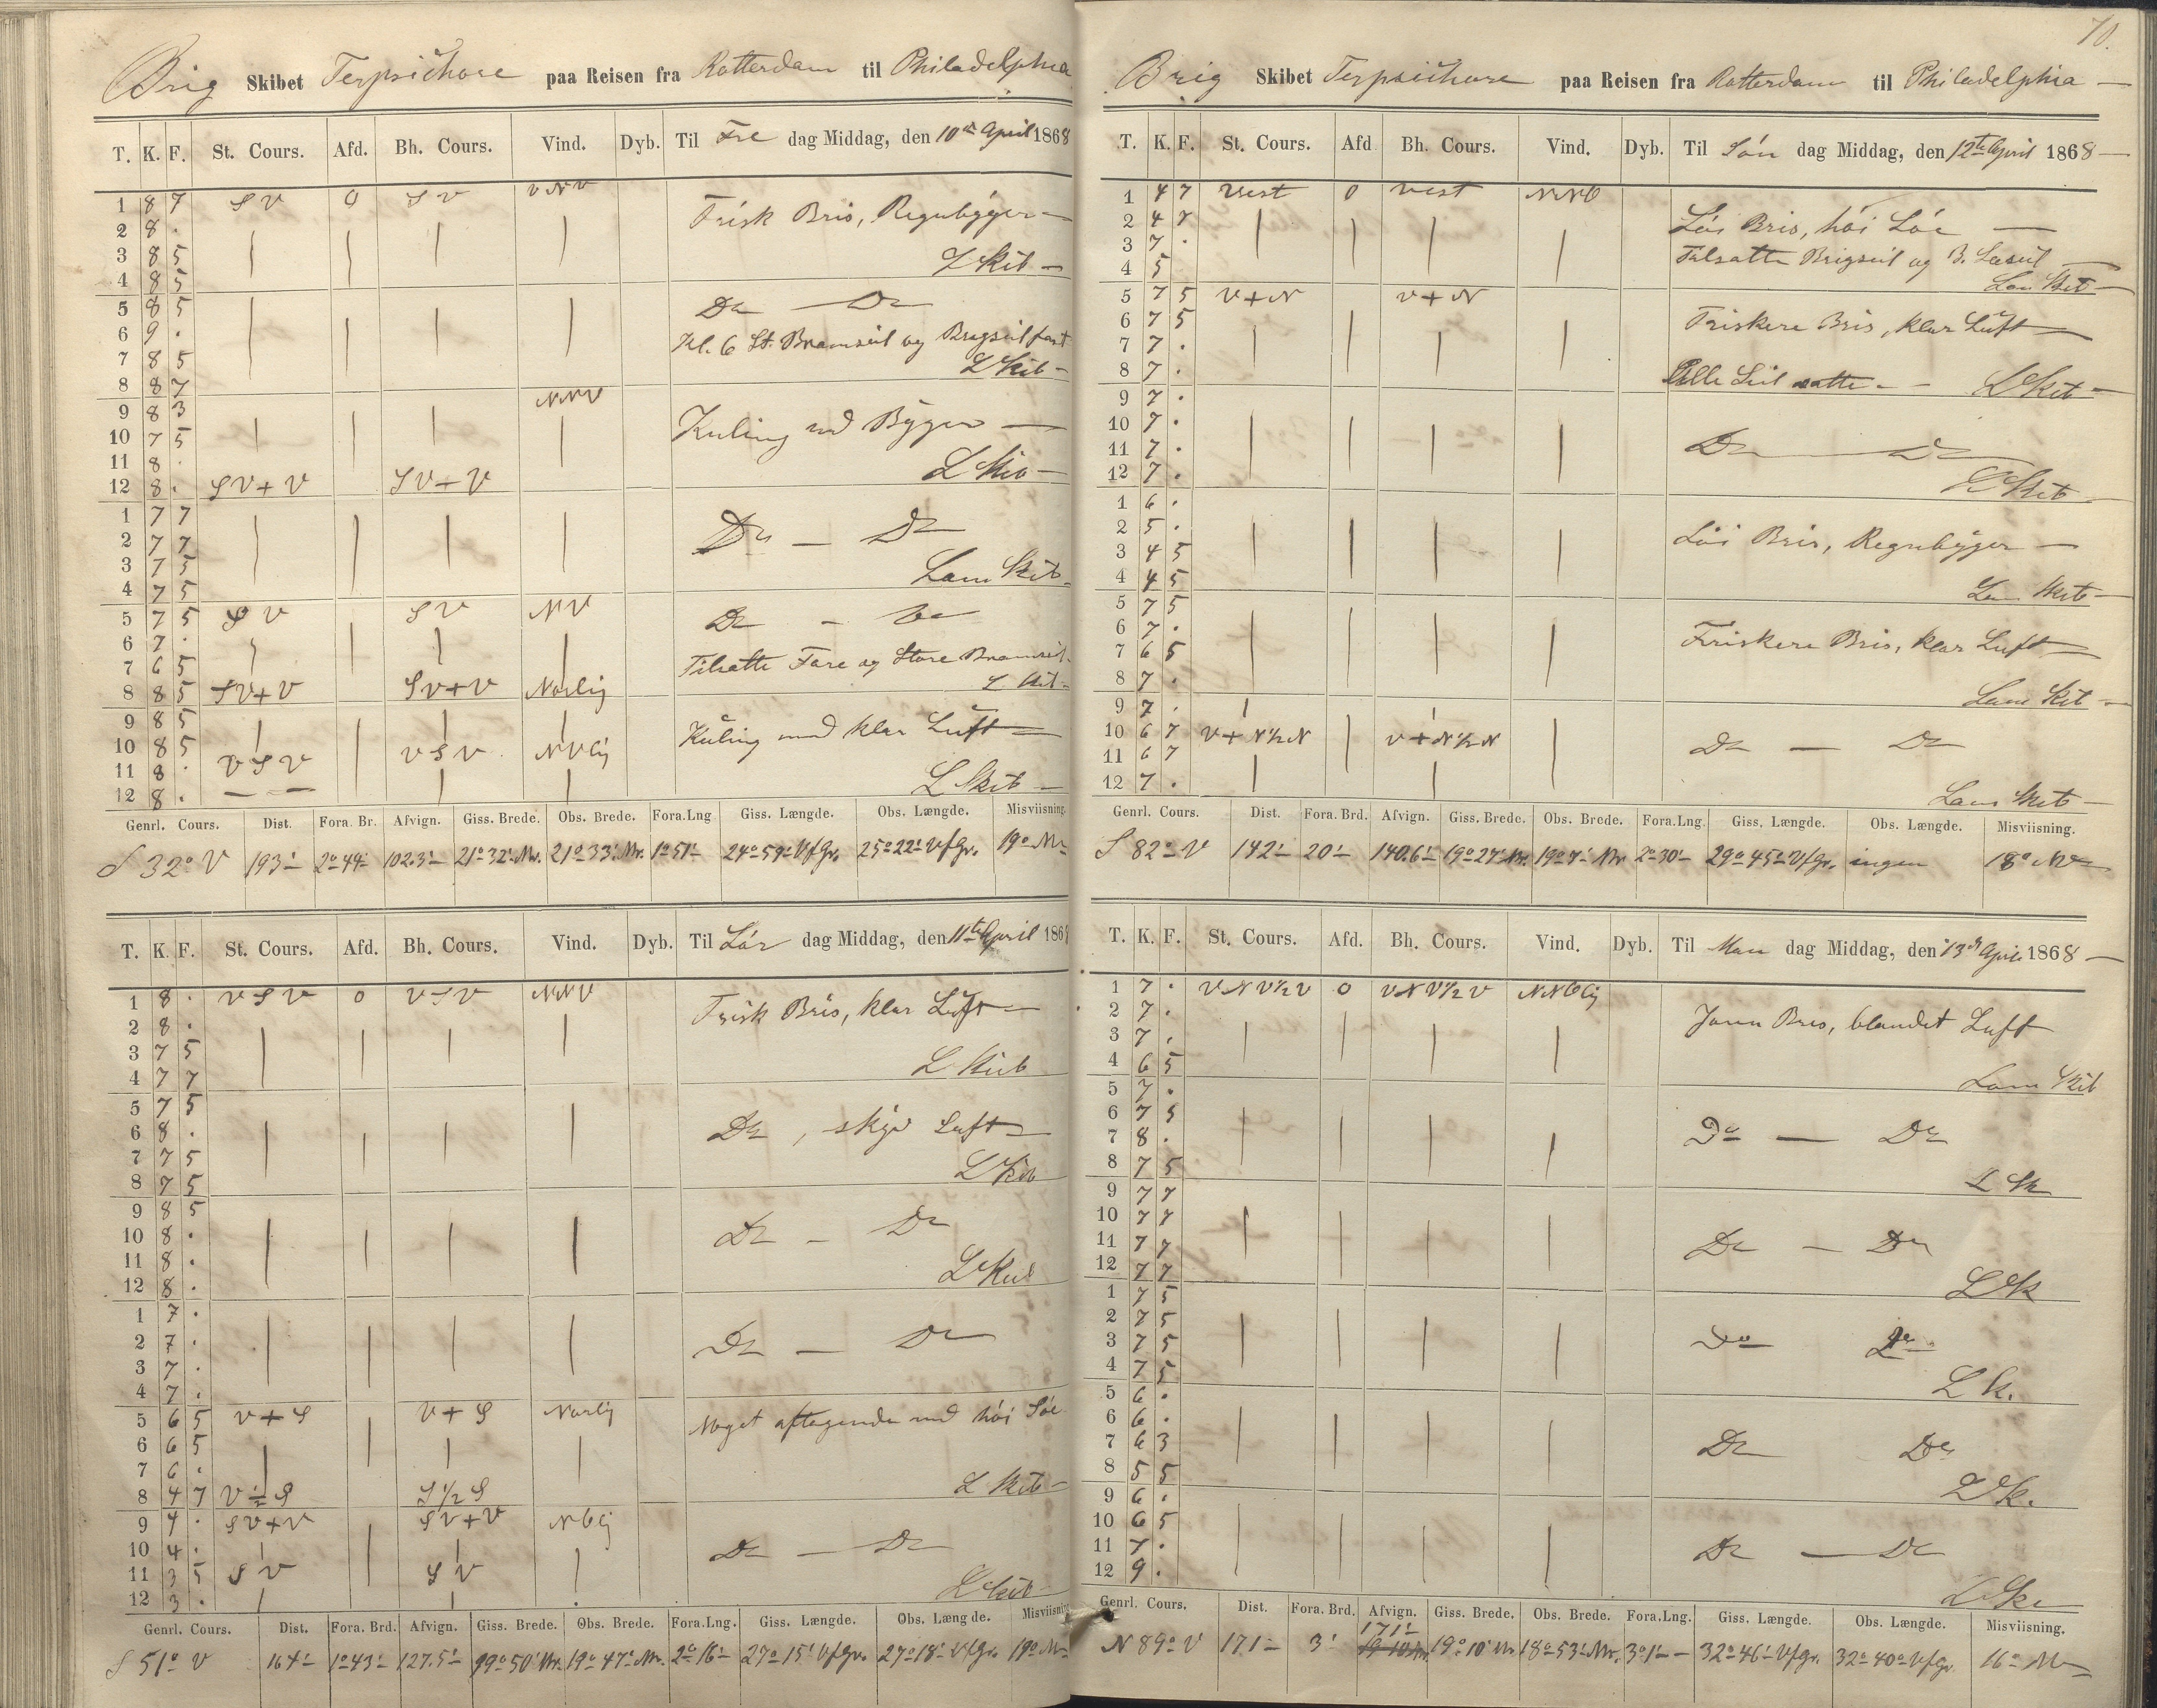 Brig Skibet Terpsichore paa Reisen fra Rotterdam til Philadelphia
T. K. F. St. Cours. Afd. Bh. Cours. Vind. Dyb. Til Fre dag Middag, den 10de April 1868
1 8 7 SV 0 SV VNV
Frisk Bris, Regnbÿger —
2 8 .
3 8 5
L Skib —
4 8 5
5 8 5
Do — Do
6 9 .
Kl. 6 St. Bramseil og Brigseil fast
7 8 5
L Skib —
8 8 7
9 8 3 NNV
10 7 5
Kuling med Bÿger —
11 8 .
L Skib —
12 8 . SV+V SV+V
1 7 7
2 7 7
Do — Do
3 7 5
Lens Skib —
4 7 5
5 7 5 SV SV NV
Do — Do
6 7 .
7 6 5
Tilsatte Fore og Store Bramseil.
8 8 5 SV+V SV+V Norlig
L Skib —
9 8 5
10 8 5
Kŭling med klar Lŭft —
11 8 . VSV VSV NVlig
12 8 . — —
L Skib —
Genrl. Cours. Dist. Fora. Br. Afvign. Giss. Brede. Obs. Brede. Fora.Lng Giss. Længde. Obs. Længde. Misviisning.
S 32° V 193' 2°44' 102.3' 21°32' Nr. 21°33' Nr. 1°51' 24°59' VfGr. 25°22' VfGr. 19° NV
T. K. F. St. Cours. Afd. Bh. Cours. Vind. Dyb. Til Lör dag Middag, den 11te April 1868
1 8 . VSV 0 VSV NNV
Frisk Bris, klar Lŭft —
2 8 .
3 7 5
4 7 7
L Skib
5 7 5
6 8 .
Do, skÿet Luft —
7 7 5
L Skib
8 7 5
9 8 5
10 8 .
Do — Do
11 8 .
L Skib
12 8 .
1 7 .
2 7 .
Do — Do
3 7 .
4 7 .
5 6 5 V+S V+S Norlig
Noget aftagende med höi Söe
6 6 5
7 6 .
8 4 7 V ½ S S ½ S
L Skib —
9 4 . SV+V SV+V NOlig
10 4 .
Do — Do
11 3 5 SV SV
12 3 .
L Skib —
Genrl. Cours. Dist. Fora. Brd. Afvign. Giss. Brede. Obs. Brede. Fora.Lng. Giss. Længde. Obs. Længde. Misviisning
S 51° V 164' 1°43' 127.5' 19°50' Nr. 19°47' Nr. 2°16' 27°15' VfGr. 27°18' VfGr. 19° NV
70.
Brig Skibet Terpsichore paa Reisen fra Rotterdam til Philadelphia —
T. K. F. St. Cours. Afd Bh. Cours. Vind. Dyb. Til Sön dag Middag, den 12te April 1868 —
1 4 7 Vest 0 Vest NNO
2 4 7
Löi Bris, höi Söe —
3 7 .
Tilsatte Brigseil og B. Læseil —
4 5
Lens Skib —
5 7 5 V+N V+N
6 7 5
Friskere Bris, klar Lŭft —
7 7 .
8 7 .
Alle Seil satte. — L Skib —
9 7 .
10 7 .
11 7 .
Do — Do
12 7 .
L Skib —
1 6 .
2 5 .
Löi Bris, Regnbÿger —
3 4 5
4 4 5
Lens Skib —
5 7 5
6 7 .
Friskere Bris, klar Luft —
7 6 5
8 7 .
Lens Skib —
9 7 .
10 6 7 V+N½N V+N½N
Do — Do
11 6 7
12 7 .
Lens Skib —
Genrl. Cours. Dist. Fora. Brd. Afvign. Giss. Brede. Obs. Brede. Fora.Lng. Giss. Længde. Obs. Længde. Misviisning.
S 82° V 142' 20' 140.6' 19°27' Nr. 19°7' Nr 2°30' 29°45' VfGr. ingen 18° NV
T. K. F. St. Cours. Afd. Bh. Cours. Vind. Dyb. Til Man dag Middag, den 13de April 1868 —
1 7 . VNV½V 0 VNV½V NNOlig
2 7 .
Jævn Bris, blandet Luft
3 7 .
4 6 5
Lens Skib
5 7 .
6 7 5
7 8 .
Do — Do
8 7 5
L Sk
9 7 7
10 7 7
11 7 7
Do — Do
12 7 7
L Sk
1 7 5
2 7 5
3 7 5
Do Do
4 7 5
L Sk.
5 6 .
6 6 .
7 6 3
Do Do
8 5 5
L Sk.
9 6 .
10 6 5
11 7 .
Do — Do
12 9 .
L Sk
Genrl. Cours. Dist. Fora. Brd. Afvign. Giss. Brede. Obs. Brede. Fora.Lng. Giss. Længde. Obs. Længde. Misviisning.
N 89° V 171' 3' 171' 19°10' Nr 18°53' Nr. 3°1' — 32°46' VfGr. 32°40' VfGr 16° NV